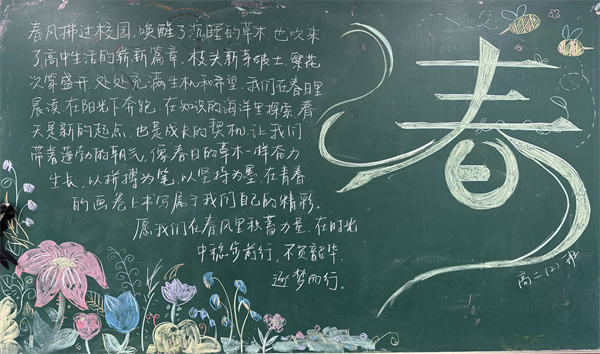 春风拂过校园，唤醒了沉睡的草木，也吹来
了高中生活的崭新篇章。枝头新芽破土，繁花
次第盛开，处处充满生机和希望。我们在春日里
晨读，在阳光下奔跑，在知识的海洋里探索。春
天是新的起点，也是成长的契机，让我们
带着蓬勃的朝气，像春日的草木一样奋力
生长，以拼搏为笔，以坚持为墨，在青春
的画卷上书写属于我们自己的精彩。
愿我们在春风里积蓄力量，在时光
中稳步前行，不负韶华，
逐梦而行。
春
高二(2)班